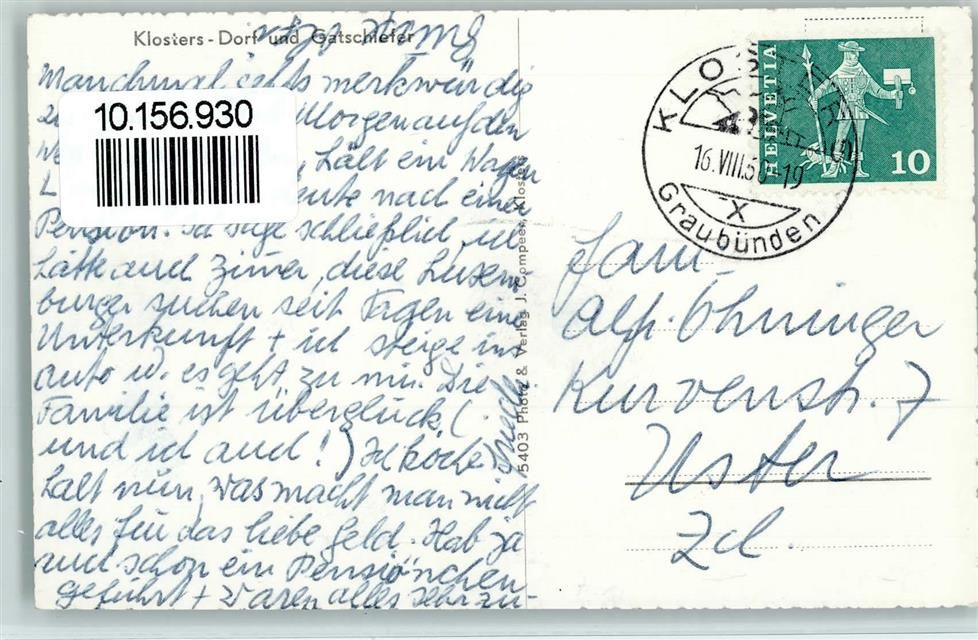 Klosters-Dorf und Gatschiefer
Manchmal gehts merkwürdig
10.156.930
Morgen auf den
We , hält ein Wagen
L eute nach einer
Pension. Ich sage schließlich, ich
hätte auch Zimmer, diese Luxem-
burger suchen seit Tagen eine
Unterkunft + ich steige ins
Auto u. es geht zu mir. Die
Familie ist überglückl.(
und ich auch!) Ich koche
halt nun, was macht man nicht
alles für das liebe Geld. Hab ja
auch schon ein Pensiönchen
geführt + waren alles sehr zu-
5403 Photo & Verlag J. Compeer, Kloste
KLOSTERS
16.VIII.60-19
X
Graubünden
HELVETIA
10
Fam.
Alf. Ohninger
Kurvenstr. 7
Uster
Zch.